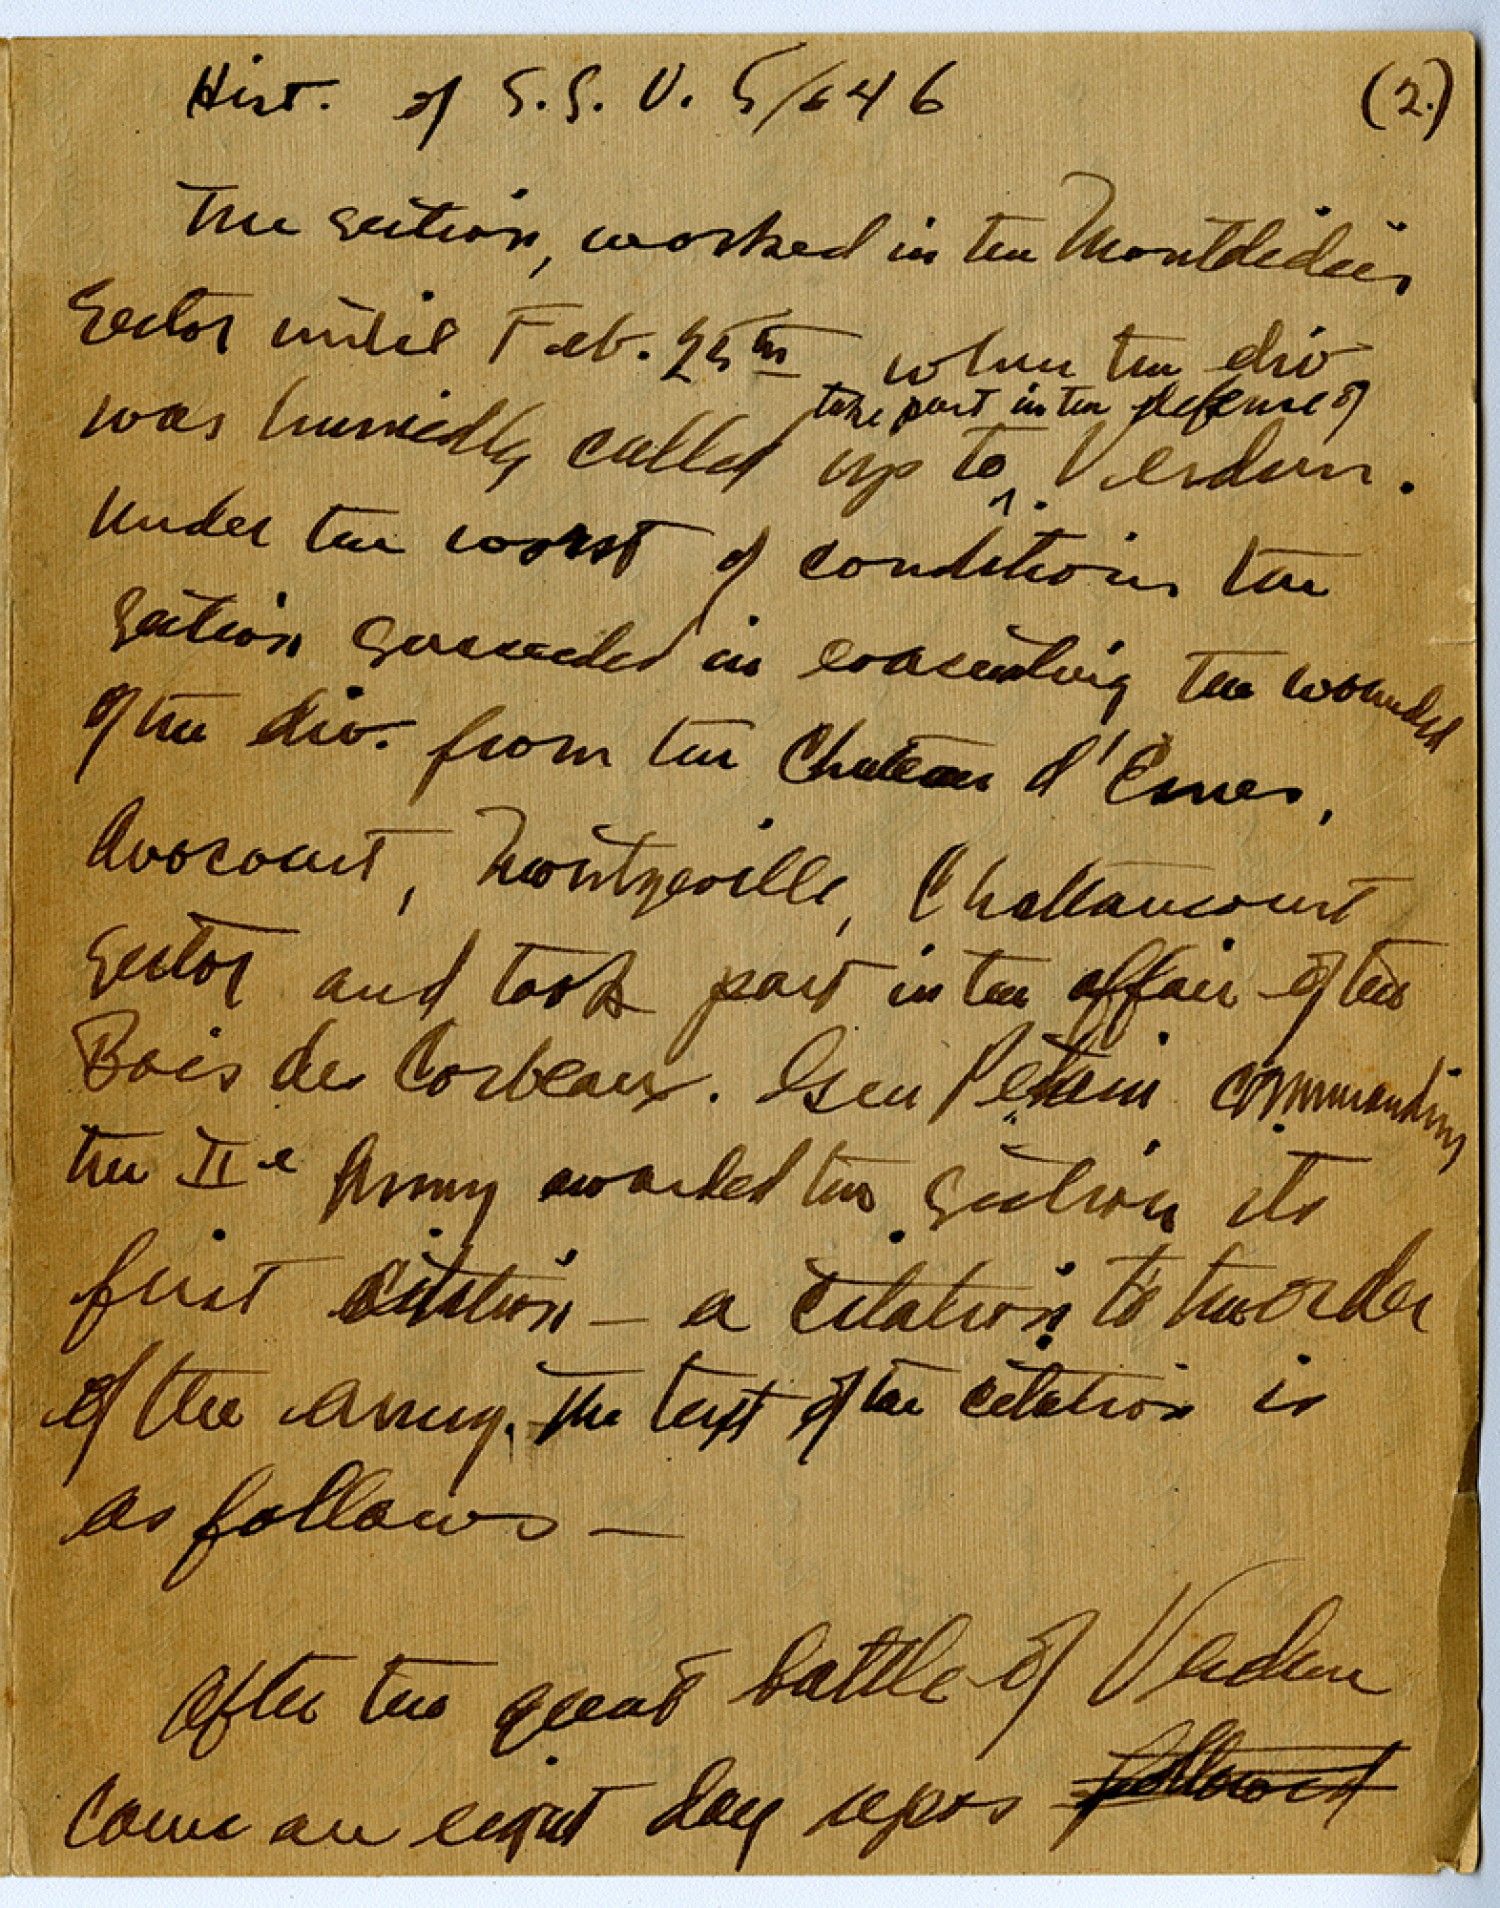 Hist. of S.S.U. 5/646 (2.)
The section, worked in the Montdidier
sector until Feb. 25th when the div
take part in the defense of
was hurriedly called up to ^ Verdun.
Under the worst of conditions the
section succeeded in evacuating the wounded
of the div. from the Chateau d'Esnes,
Avocourt, Montzeville, Chattancourt
sector and took part in the affair of the
Bois des Corbeaux. Gen Pétain commanding
the IIe Army awarded the section its
first citation – a citation to the order
of the army. The text of the citation is
as follows –
After the great battle of Verdun
came an eight day repos followed